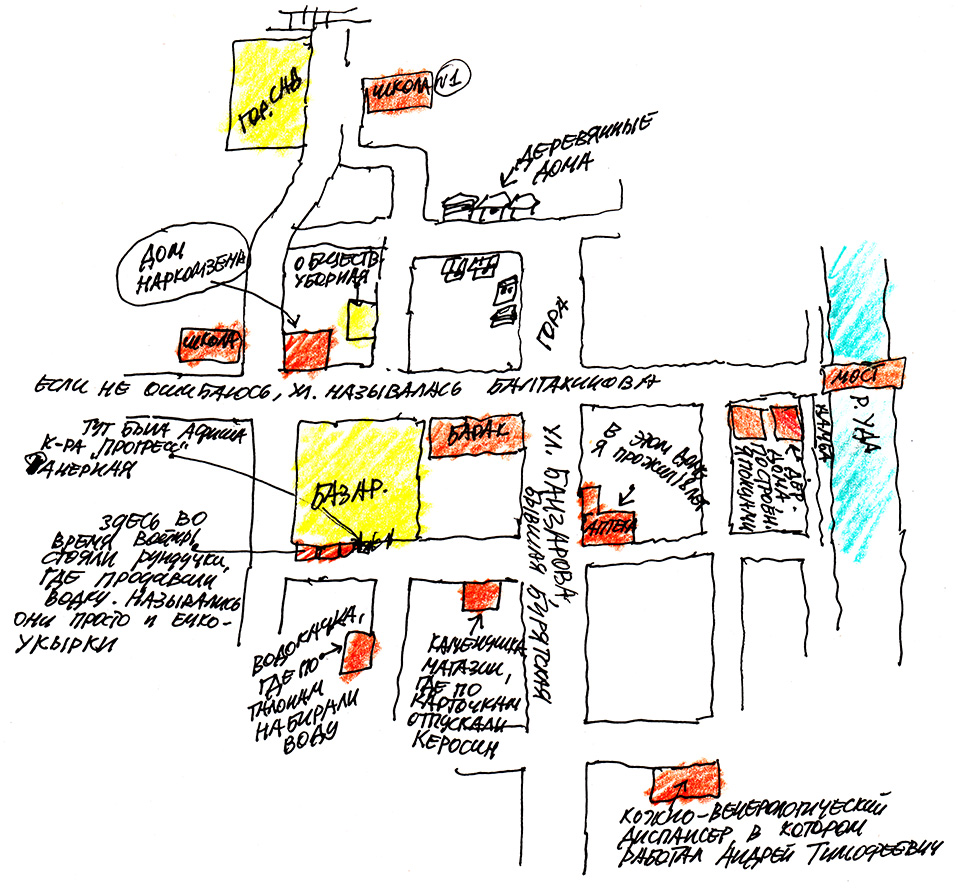 ГОР. САД
ШКОЛА
№1
ДЕРЕВЯННЫЕ
ДОМА
ДОМ
НАРКОМЗЕМА
ОБЩЕСТВ.
УБОРНАЯ
ШКОЛА
ГОРА
ЕСЛИ НЕ ОШИБАЮСЬ, УЛ. НАЗЫВАЛАСЬ БАЛТАХИНОВА
МОСТ
Р. УДА
ТУТ БЫЛА АФИША
К-РА „ПРОГРЕСС”
ФАНЕРНАЯ
БАЗАР.
БАРАК
УЛ. БАНЗАРОВА,
БЫВШАЯ БУРЯТСКАЯ
В ЭТОМ ДОМЕ
Я ПРОЖИЛ
АПТЕКА
ДОМА
ПОСТРОЕНЫ
ЯПОНЦАМИ
ЗДЕСЬ ВО
ВРЕМЯ ВОЙНЫ
СТОЯЛИ РУНДУЧКИ,
ГДЕ ПРОДАВАЛИ
ВОДКУ. НАЗЫВАЛИСЬ
ОНИ ПРОСТО И ЕМКО-
УКЫРКИ
ВОДОКАЧКА,
ГДЕ ПО
ТАЛОНАМ
НАБИРАЛИ
ВОДУ
КАМЕНУШКА
МАГАЗИН,
ГДЕ ПО
КАРТОЧКАМ
ОТПУСКАЛИ
КЕРОСИН
КОЖНО-ВЕНЕРОЛОГИЧЕСКИЙ
ДИСПАНСЕР В КОТОРОМ
РАБОТАЛ АНДРЕЙ ТИМОФЕЕВИЧ